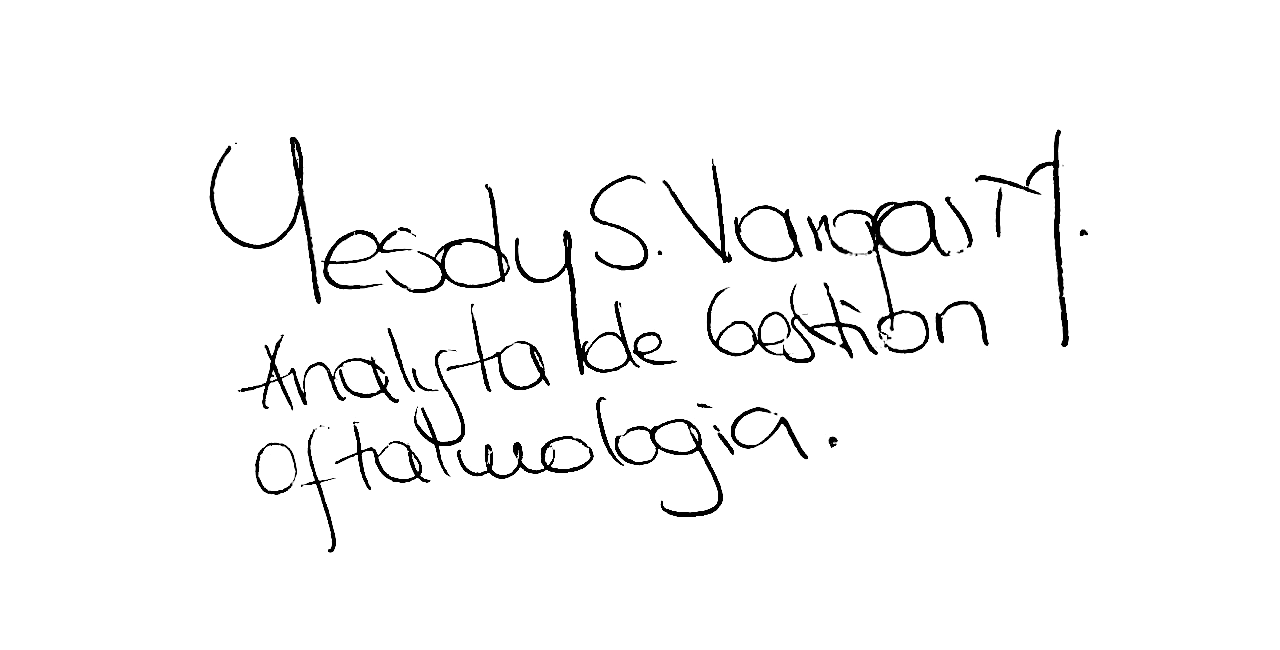 Yesdy S. Vargas M.
Analysta de Gestion
Oftalmologia.